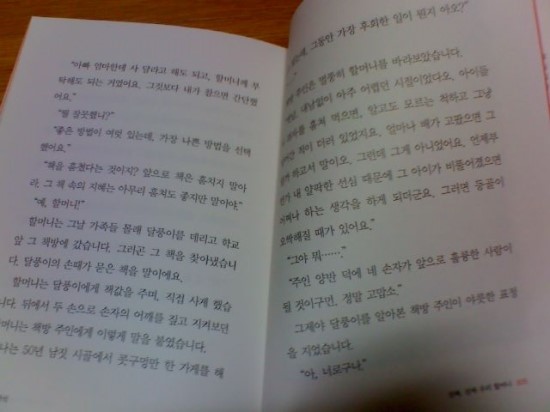 "아빠 엄마한테 사 달라고 해도 되고, 할머니께 부
탁해도 되는 거였어요. 그것보다 내가 참으면 간단했
어요."
"뭘 잘못했니?"
"좋은 방법이 여럿 있는데, 가장 나쁜 방법을 선택
했어요."
"책을 훔쳤다는 것이지? 앞으로 책은 훔치지 말아
라. 그 책 속의 지혜는 아무리 훔쳐도 좋지만 말이야."
"예, 할머니!"
할머니는 그날 가족들 몰래 달풍이를 데리고 학교
앞 그 책방에 갔습니다. 그러곤 그 책을 찾아냈습니
다. 달풍이의 손때가 묻은 책을 말이에요.
할머니는 달풍이에게 책값을 주며, 직접 사게 했습
니다. 뒤에서 두 손으로 손자의 어깨를 짚고 지켜보던
할머니는 책방 주인에게 이렇게 말을 붙였습니다.
나는 50년 남짓 시골에서 콧구멍만 한 가게를 해
그동안 가장 후회한 일이 뭔지 아오?"
주인은 멍하니 할머니를 바라보았습니다.
내남없이 아주 어렵던 시절이었다오. 아이들
훔쳐 먹으면, 알고도 모르는 척하고 그냥
적이 더러 있었지요. 얼마나 배가 고팠으면 그
하고서 말이오. 그런데 그게 아니었어요. 언제부
내 얄팍한 선심 때문에 그 아이가 비뚤어졌으면
어쩌나 하는 생각을 하게 되더군요. 그러면 등골이
오싹해질 때가 있어요."
"그야 뭐……."
"주인 양반 덕에 네 손자가 앞으로 훌륭한 사람이
될 것이구먼. 정말 고맙소."
그제야 달풍이를 알아본 책방 주인이 야릇한 표정
을 지었습니다.
"아, 너로구나."